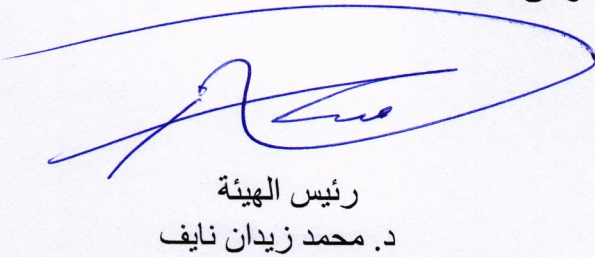 رئيس الهيئة
د. محمد زيدان نايف